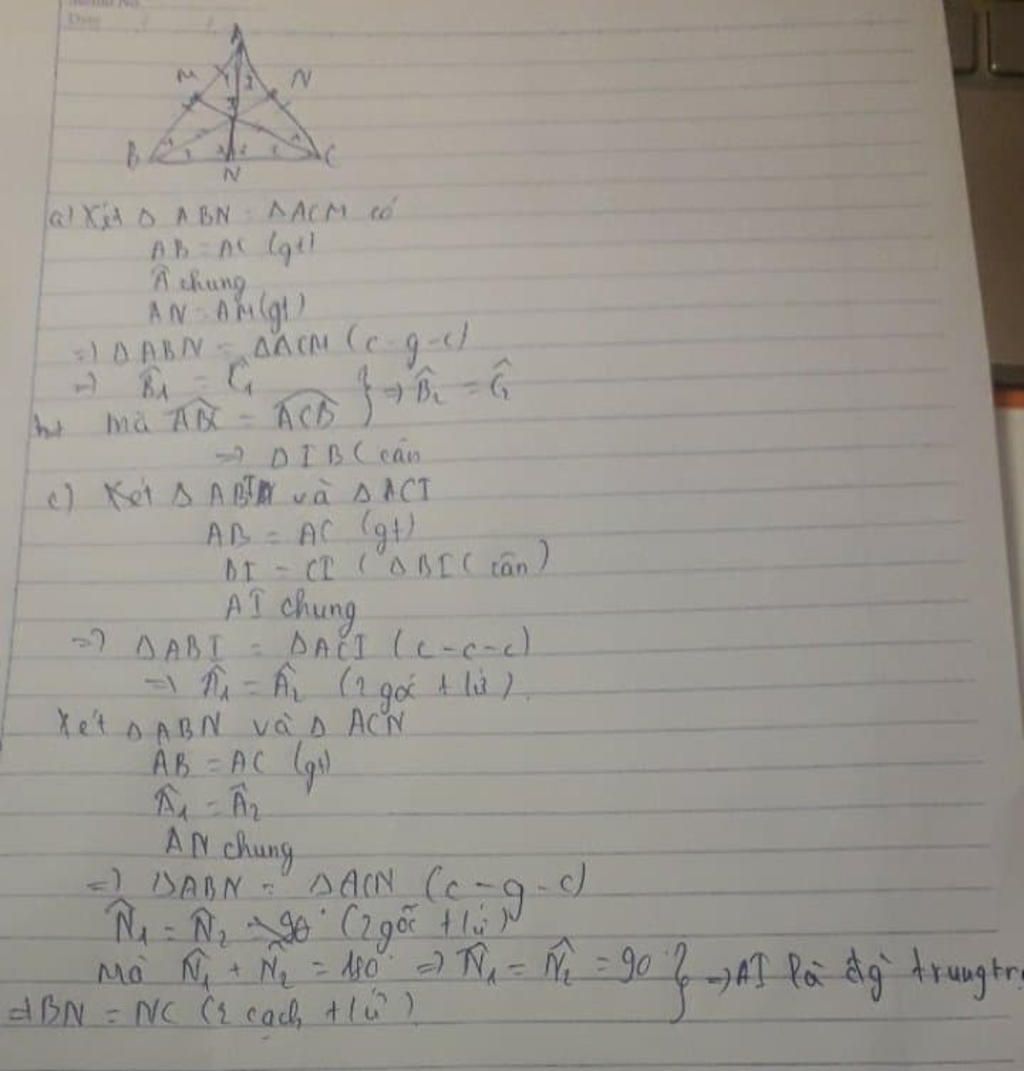 A
M 1 2 N
B C
N
a) Xét Δ ABN = ΔACM có
AB = AC (gt)
Â chung
AN = AM (gt)
=> ΔABN = ΔACM (c-g-c)
=> B̂₁ = Ĉ₁ } => B̂₂ = Ĉ₂
b) mà ABC = ACB
=> ΔIBC cân
c) Xét Δ ABI và Δ ACI
AB = AC (gt)
BI = CI (ΔBIC cân)
AI chung
=> ΔABI = ΔACI (c-c-c)
=> Â₁ = Â₂ (2 góc t ứ)
Xét Δ ABN và Δ ACN
AB = AC (gt)
Â₁ = Â₂
AN chung
=> ΔABN = ΔACN (c-g-c)
N̂₁ = N̂₂ (2 góc t ứ)
Mà N̂₁ + N̂₂ = 180° => N̂₁ = N̂₂ = 90° } => AI là đg trung tr
=> BN = NC (2 cạch t ứ)